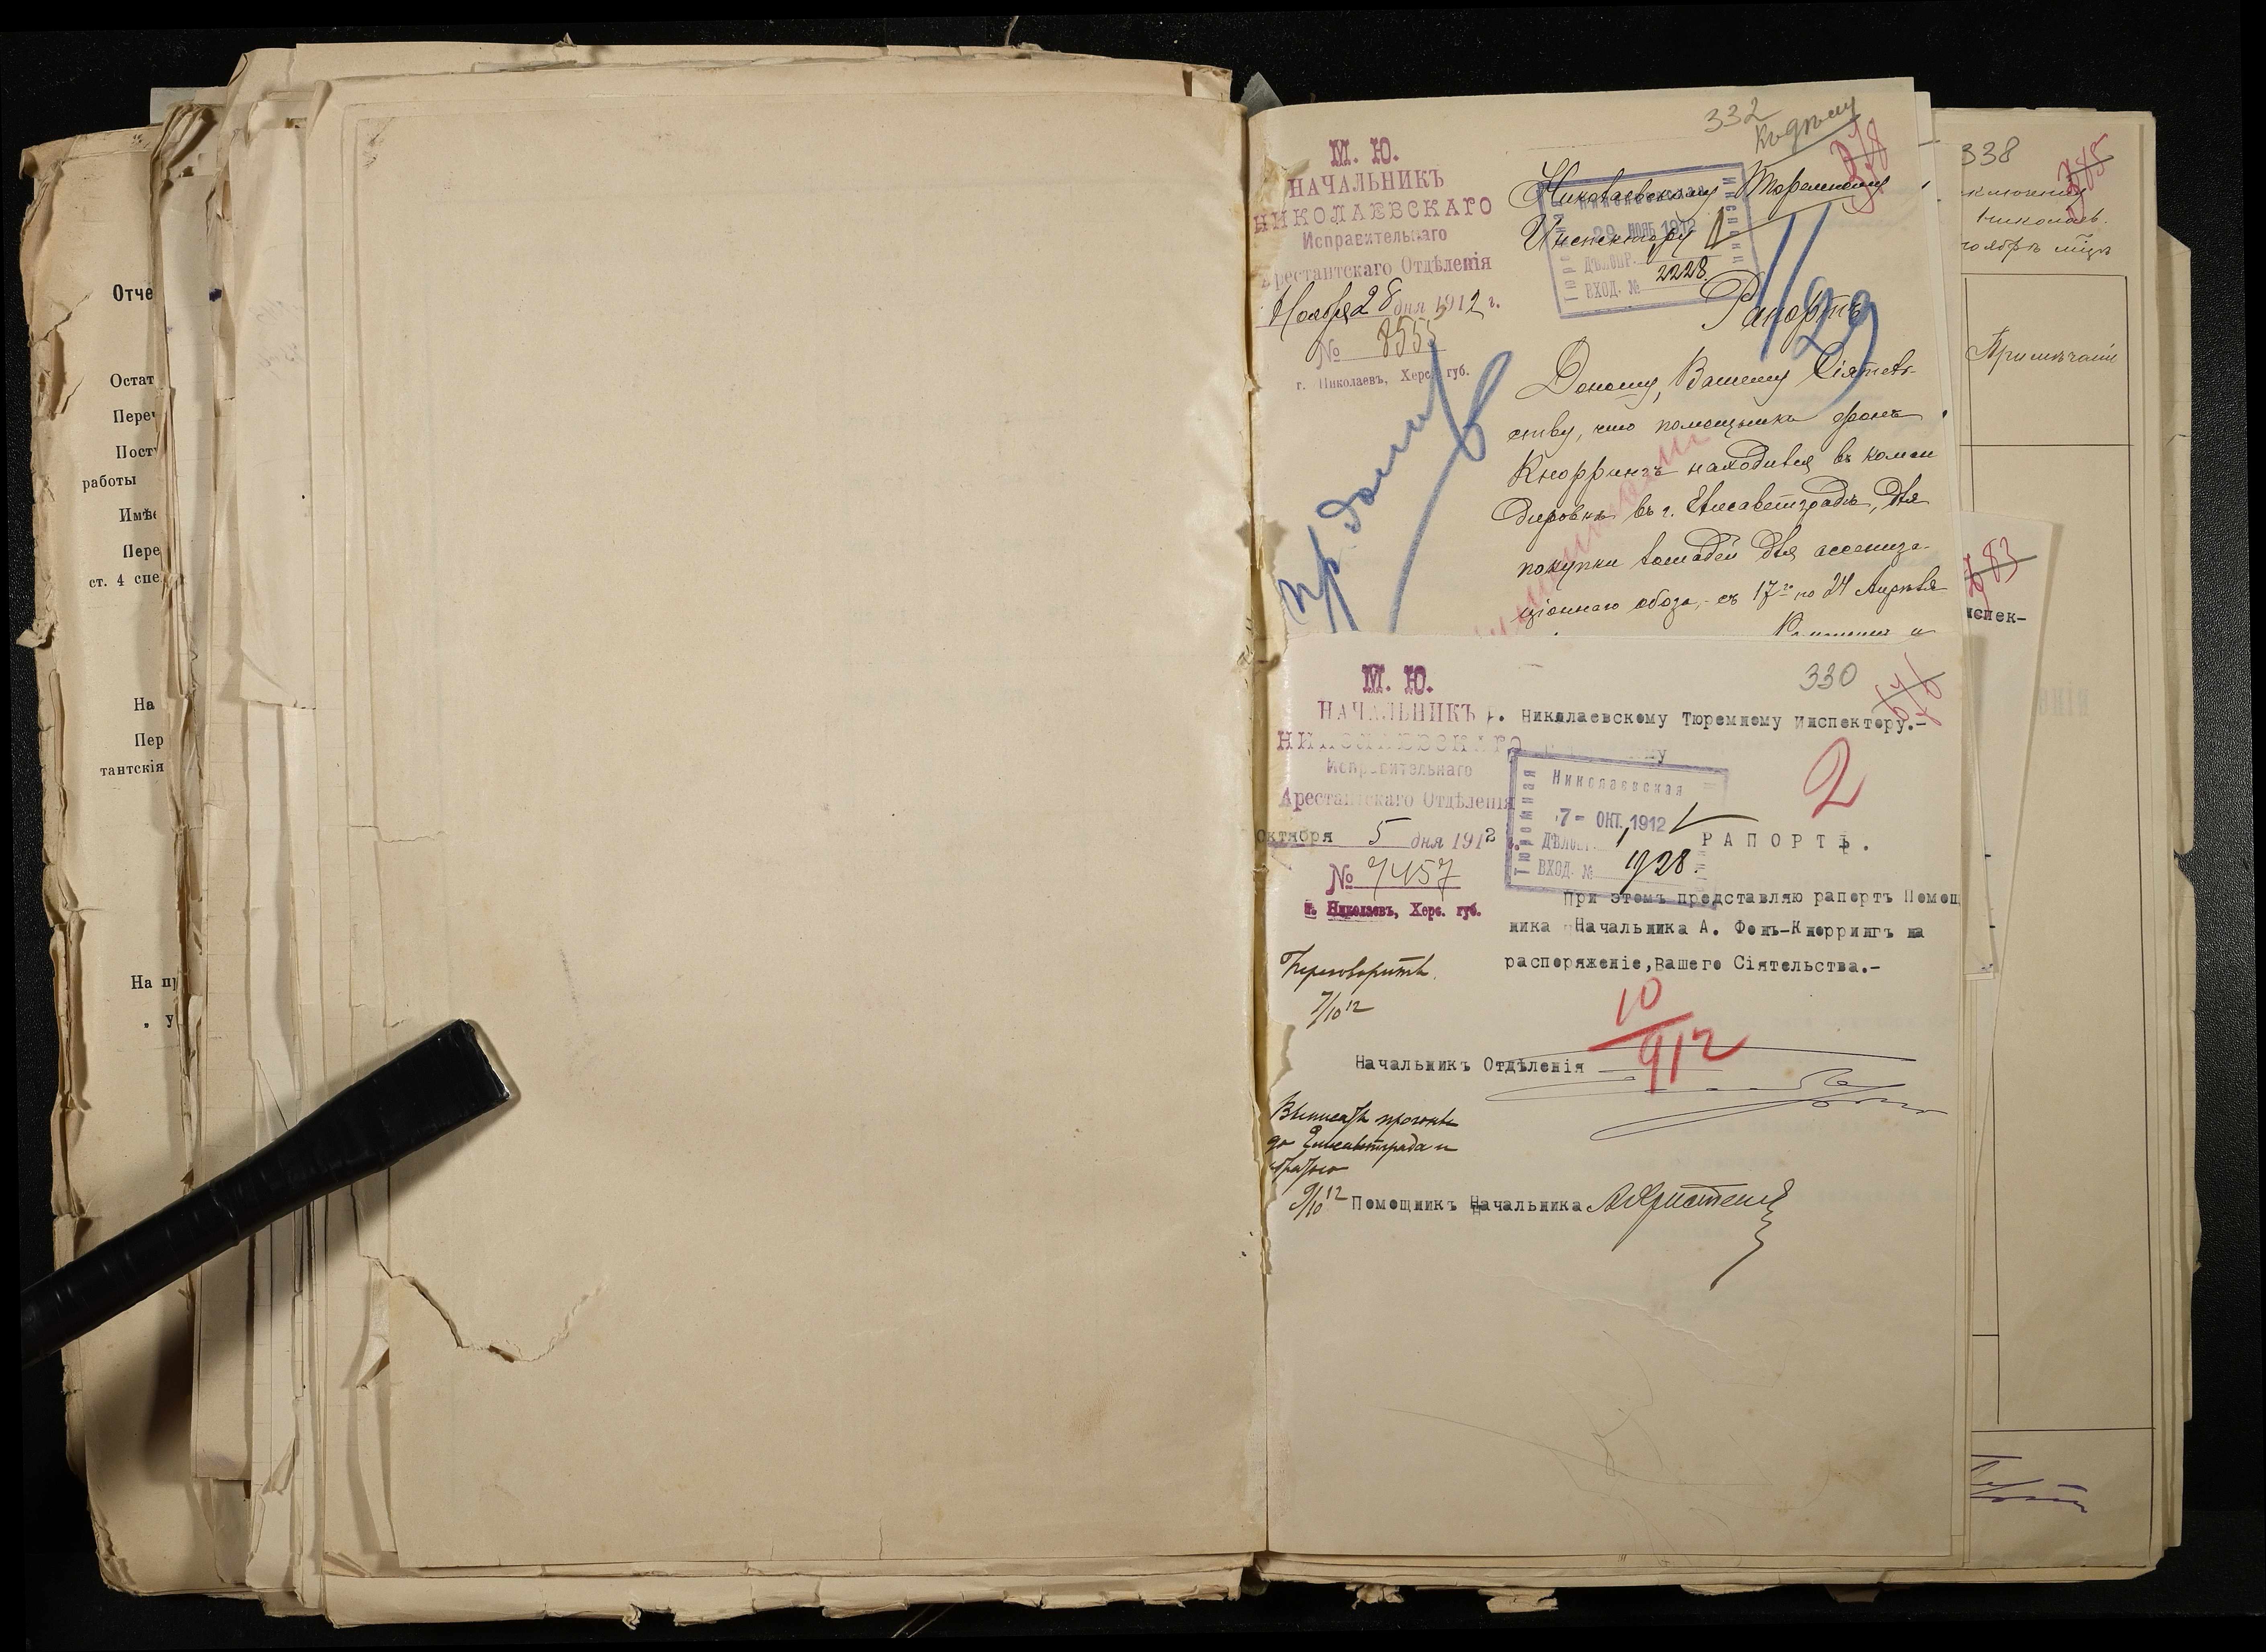 Отче
Остат
Переч
Пост
работы
Имѣ
Пере
ст. 4 спе
На
Пер
тантскія
На пр
„ у
332
Къ дѣлу
М. Ю.
НАЧАЛЬНИКЪ
НИКОЛАЕВСКАГО
Исправительнаго
Арестантскаго Отдѣленія
Ноября 28 дня 1912 г.
№ 8555
г. Николаевъ, Херс. губ.
Николаевскому Тюремному
Инспектору
29 НОЯБ 1912
ДѢЛОПР.
ВХОД. № 2228
Рапортъ
11/29
Доношу, Вашему Сіятель-
ству, что помощникъ фонъ
Кноррингъ находился въ коман
дировкѣ въ г. Елисаветградѣ, для
покупки лошадей для ассениза-
ціоннаго обоза, – съ 17го по 24 Апрѣля
330
М. Ю.
НАЧАЛЬНИКЪ
НИКОЛАЕВСКАГО
Исправительнаго
Арестантскаго Отдѣленія
Октября 5 дня 1912
№ 7457
г. Николаевъ, Херс. губ.
Г. Николаевскому Тюремному Инспектору.-
Николаевская
Тюремная
7- ОКТ. 1912
ДѢЛОПР. 1
ВХОД. № 1928.
2
РАПОРТЪ.
При этомъ представляю рапортъ Помощ
ника Начальника А. Фонъ-Кноррингъ на
распоряженіе, Вашего Сіятельства.-
Переговорить.
7/10 12
10/912
Начальникъ Отдѣленія
Выписать прогоны
до Елисаветграда и
обратно
9/10 12
Помощникъ Начальника
338
785
Николаев.
ноябрь мѣц
Примѣчаніе
783
нспек-